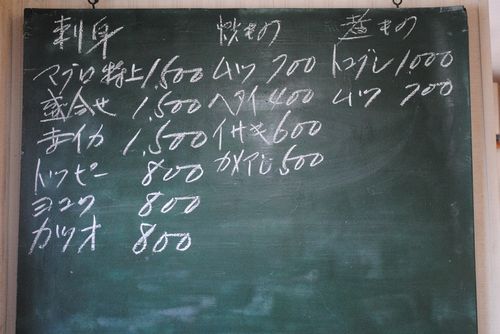 刺身
マグロ特上 1,500
盛合せ 1,500
赤イカ 1,500
トッピー 800
ヨコワ 800
カツオ 800
焼もの
ムツ 700
ヘダイ 400
イサキ 600
カメアジ 500
煮もの
トコブシ 1,000
ムツ 700